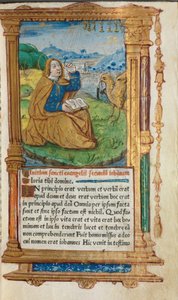 Initium sancti euangelii secundũ iohannem
Gloria tibi domine.
IN principio erat verbum et verbũ erat
apud deum et deus erat verbum hoc erat
in principio apud deũ Omnia per ipsum facta
sunt et sine ipso factum est nichil. Quod factũ
est in ipso vita erat et vita erat lux ho
minum et lux in tenebris lucet et tenebre eã
non comprehenderunt Fuit homo missus a deo
cui nomen erat iohannes Hic venit in testimo